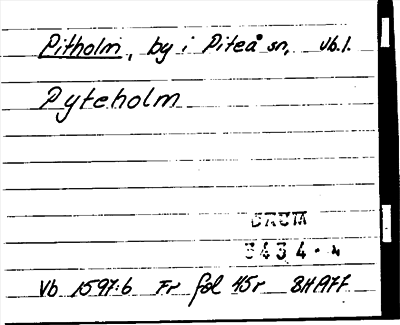 Pitholm, by i Piteå sn, Vb.l.
Pyteholm
DAUM
3434.4
Vb 1597:6 Fr fol 45r BHA77